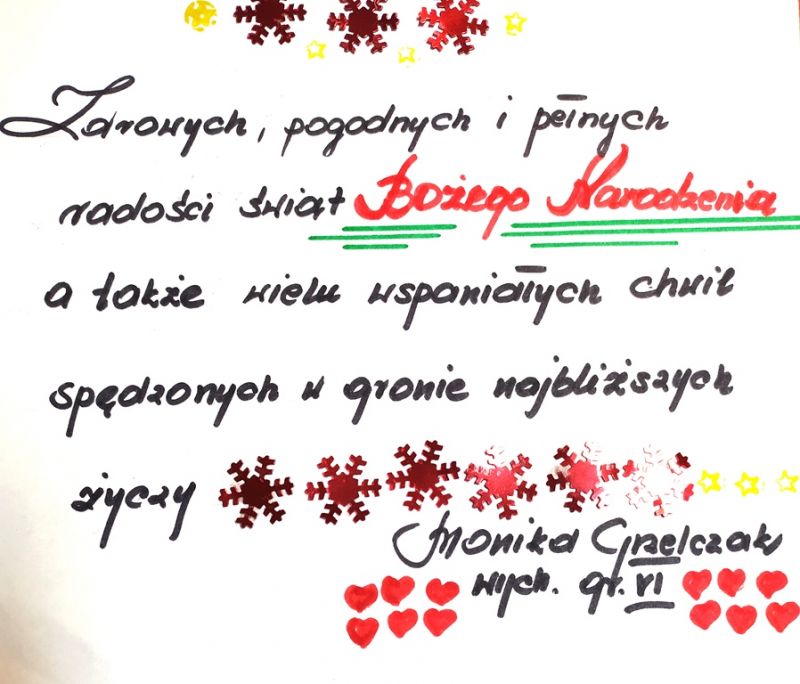 Zdrowych, pogodnych i pełnych
radości świąt Bożego Narodzenia
a także wielu wspaniałych chwil
spędzonych w gronie najbliższych
życzy
Monika Grzelczak
wych. gr. VI